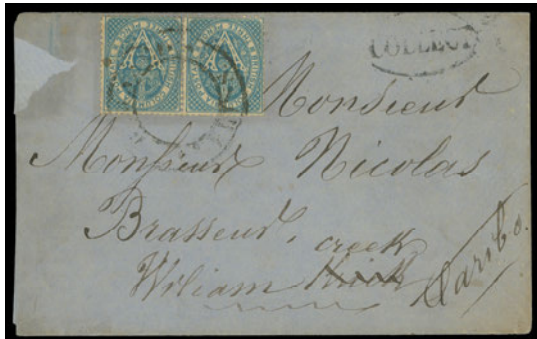 COLLECT
Monsieur
Monsieur Nicolas
Brasseur. creek
Wiliam Krick
Caribo.